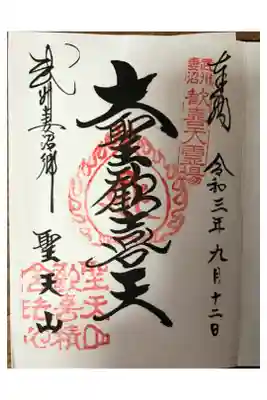 奉拝
令和三年九月十二日
武州妻沼
歓喜天霊場
大聖歓喜天
武州妻沼郷
聖天山
聖天山
歓喜院